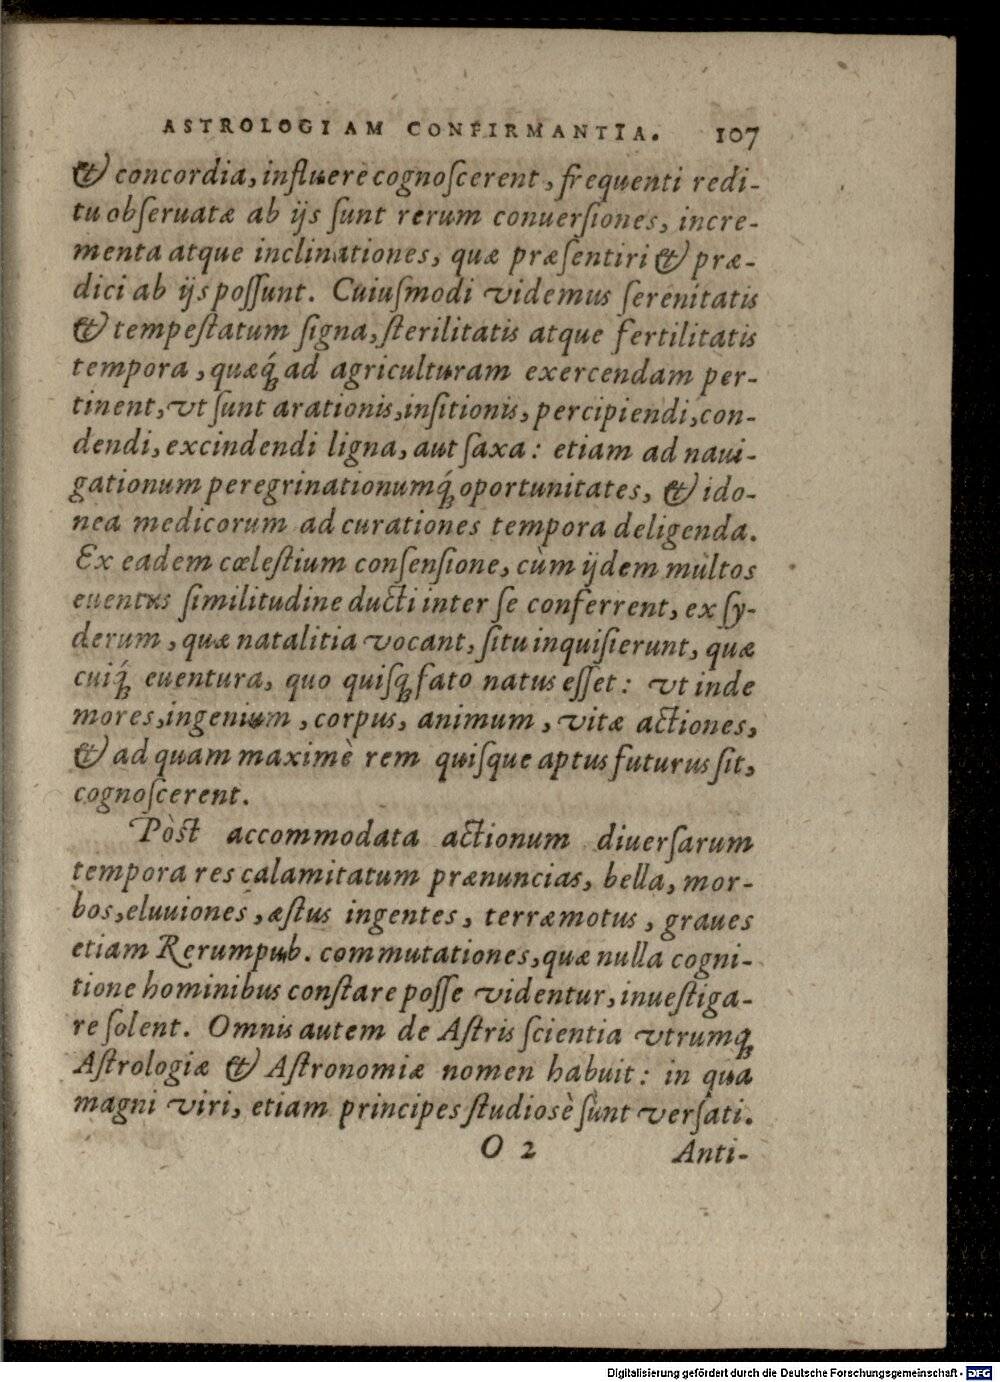 ASTROLOGIAM CONFIRMANTIA. 107
& concordia, influere cognoſcerent, frequenti redi-
tu obſeruatæ ab ijs ſunt rerum conuerſiones, incre-
menta atque inclinationes, quæ præſentiri & præ-
dici ab ijs poſſunt. Cuiuſmodi videmus ſerenitatis
& tempeſtatum ſigna, ſterilitatis atque fertilitatis
tempora, quæq́; ad agriculturam exercendam per-
tinent, vt ſunt arationis, inſitionis, percipiendi, con-
dendi, excindendi ligna, aut ſaxa: etiam ad naui-
gationum peregrinationumq́; oportunitates, & ido-
nea medicorum ad curationes tempora deligenda.
Ex eadem cœleſtium conſenſione, cùm ijdem multos
euentus ſimilitudine ducti inter ſe conferrent, ex ſy-
derum, quæ natalitia vocant, ſitu inquiſierunt, quæ
cuiq́; euentura, quo quiſq; fato natus eſſet: vt inde
mores, ingenium, corpus, animum, vitæ actiones,
& ad quam maximè rem quiſque aptus futurus ſit,
cognoſcerent.
Pòſt accommodata actionum diuerſarum
tempora res calamitatum prænuncias, bella, mor-
bos, eluuiones, æſtus ingentes, terræmotus, graues
etiam Rerumpub. commutationes, quæ nulla cogni-
tione hominibus conſtare poſſe videntur, inueſtiga-
re ſolent. Omnis autem de Aſtris ſcientia vtrumq;
Aſtrologiæ & Aſtronomiæ nomen habuit: in qua
magni viri, etiam principes ſtudiosè ſunt verſati.
O 2 Anti-
Digitalisierung gefördert durch die Deutsche Forschungsgemeinschaft - DFG